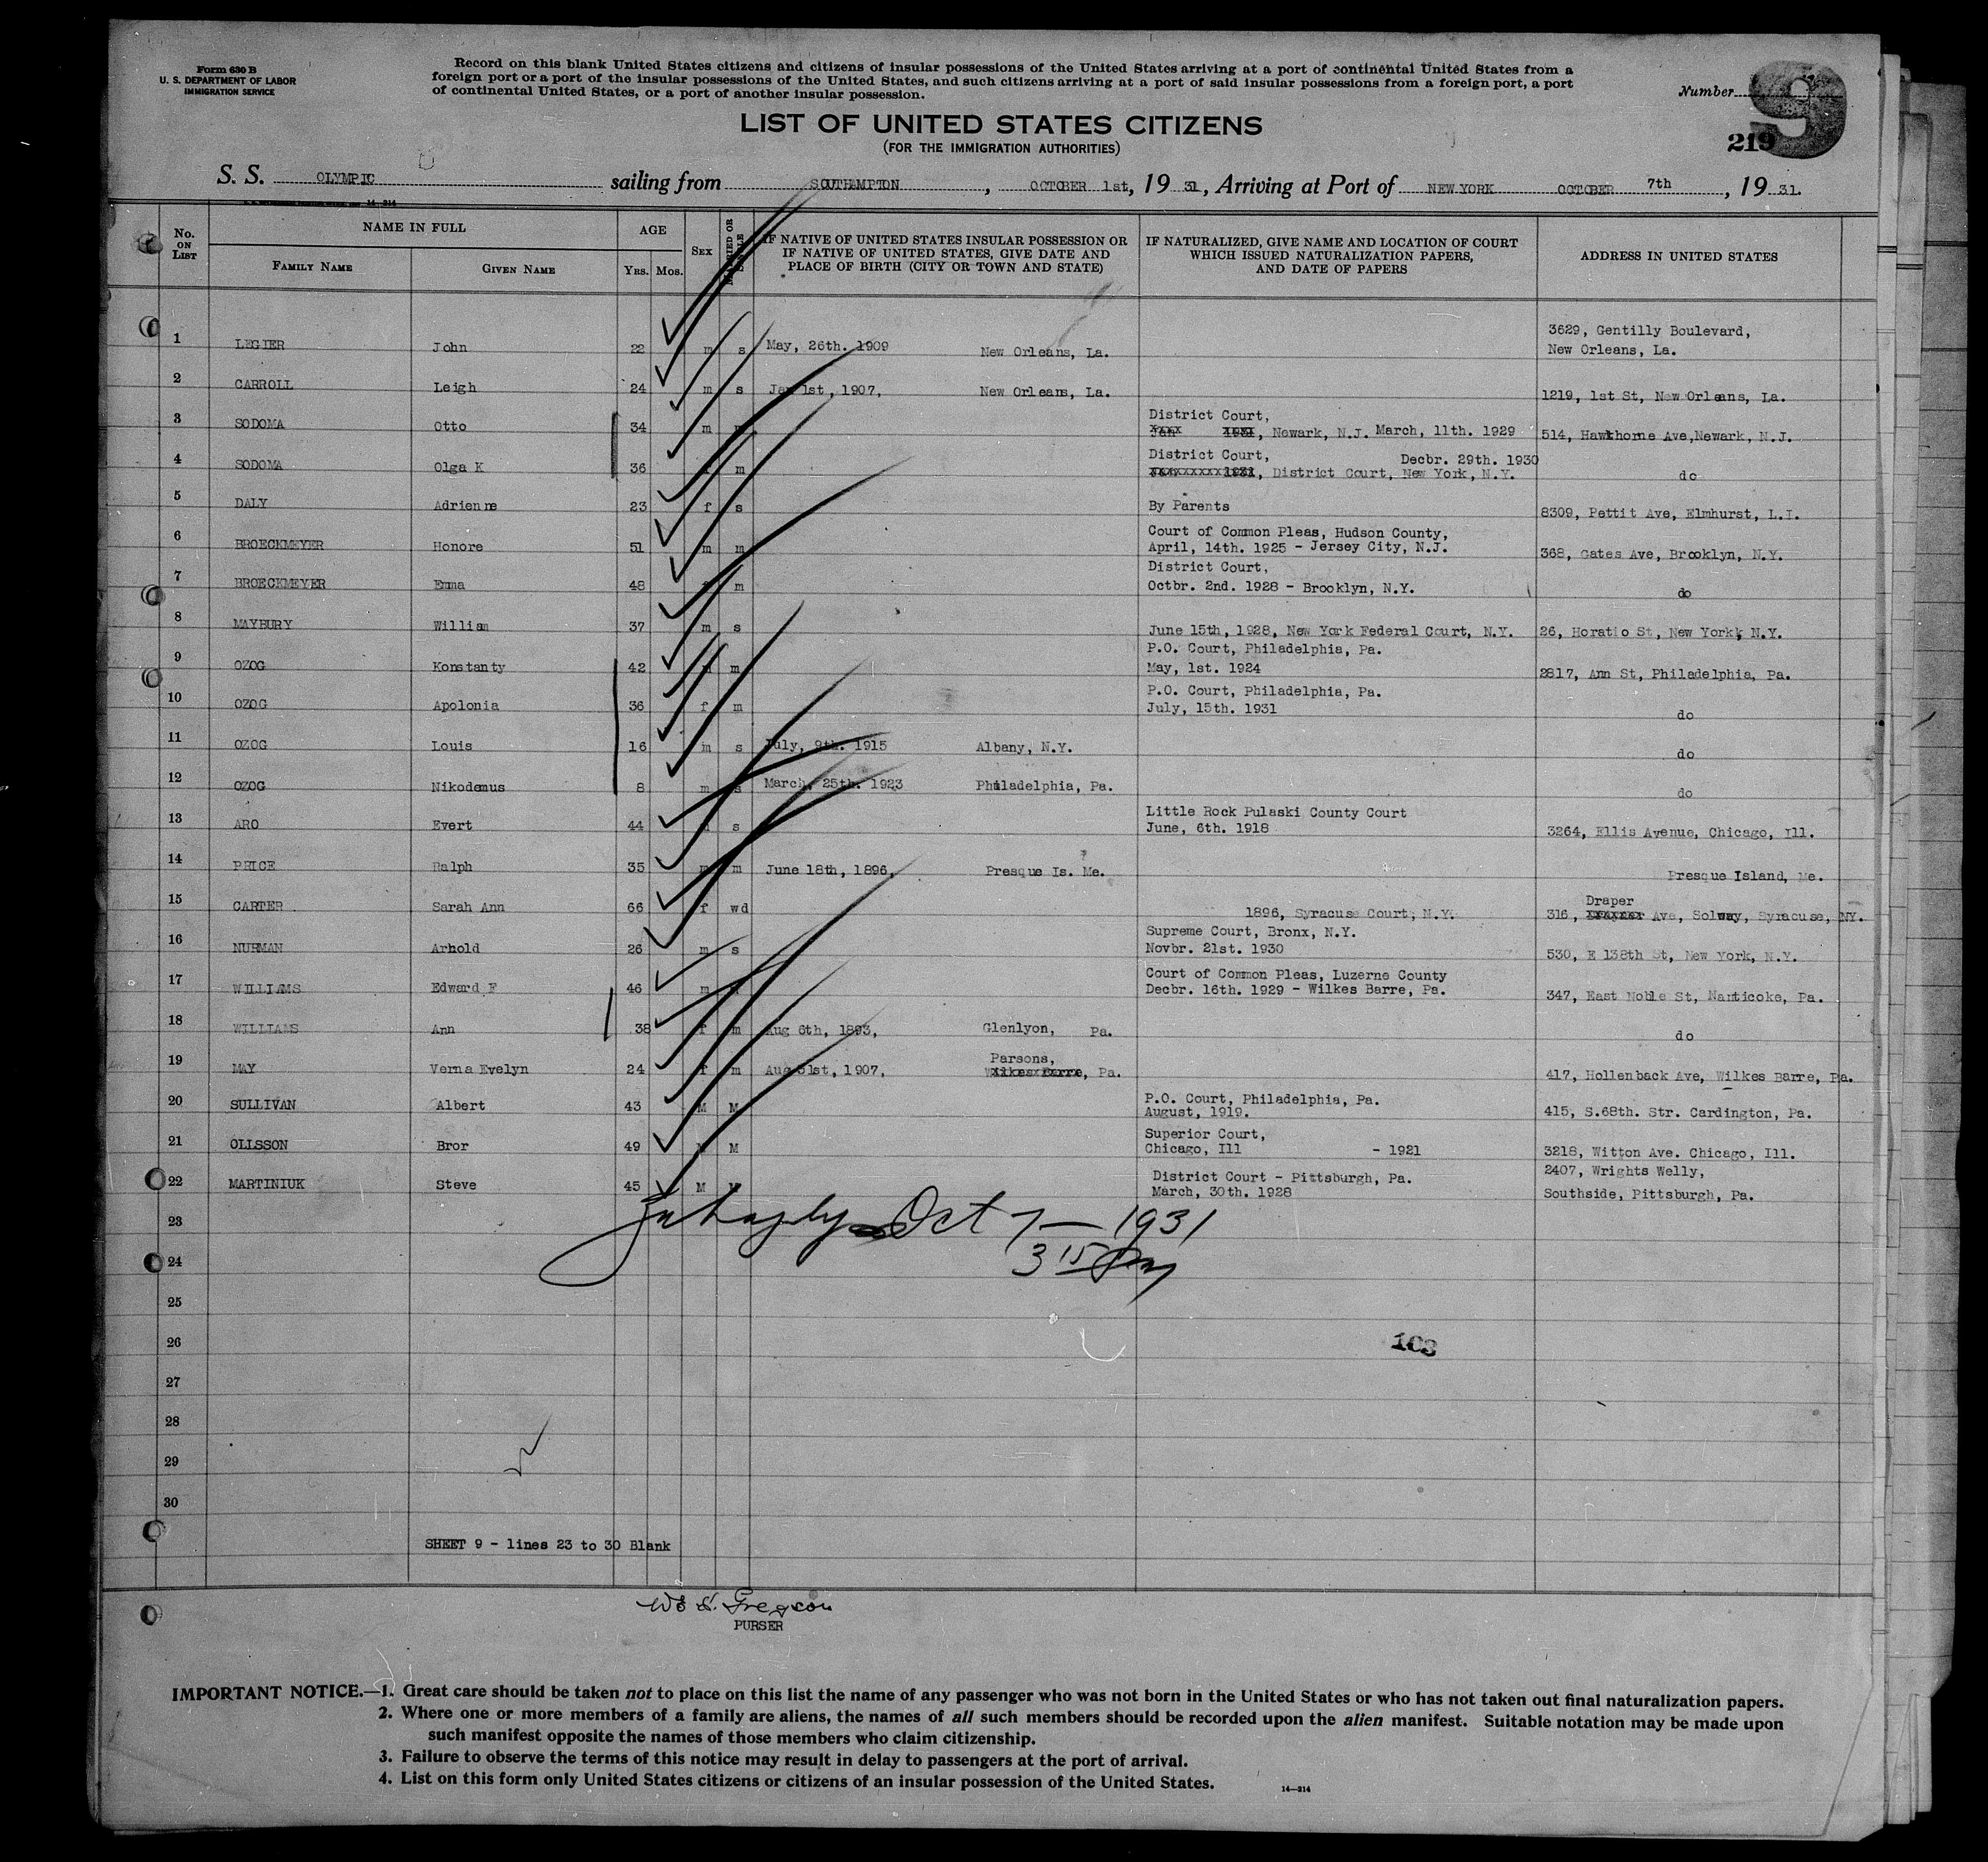 Form 630 B
U. S. DEPARTMENT OF LABOR
IMMIGRATION SERVICE
Record on this blank United States citizens and citizens of insular possessions of the United States arriving at a port of continental United States from a
foreign port or a port of the insular possessions of the United States, and such citizens arriving at a port of said insular possessions from a foreign port, a port
of continental United States, or a port of another insular possession.
Number 9
219
LIST OF UNITED STATES CITIZENS
(FOR THE IMMIGRATION AUTHORITIES)
S. S. OLYMPIC sailing from SOUTHAMPTON, OCTOBER 1st, 19 31, Arriving at Port of NEW YORK OCTOBER 7th, 19 31.
No. ON LIST NAME IN FULL FAMILY NAME GIVEN NAME AGE YRS. MOS. SEX MARRIED OR SINGLE IF NATIVE OF UNITED STATES INSULAR POSSESSION OR IF NATIVE OF UNITED STATES, GIVE DATE AND PLACE OF BIRTH (CITY OR TOWN AND STATE) IF NATURALIZED, GIVE NAME AND LOCATION OF COURT WHICH ISSUED NATURALIZATION PAPERS, AND DATE OF PAPERS ADDRESS IN UNITED STATES
1 LEGIER John 22 m s May, 26th. 1909 New Orleans, La. 3629, Gentilly Boulevard,
New Orleans, La.
2 CARROLL Leigh 24 m s Jan 1st, 1907, New Orleans, La. 1219, 1st St, New Orleans, La.
District Court,
3 SODOMA Otto 34 m Newark, N.J. March, 11th. 1929 514, Hawthorne Ave, Newark, N.J.
District Court, Decbr. 29th. 1930
4 SODOMA Olga K 36 m District Court, New York, N.Y. do
5 DALY Adrienne 23 f s By Parents 8309, Pettit Ave, Elmhurst, L.I.
Court of Common Pleas, Hudson County,
6 BROECKMEYER Honore 51 m m April, 14th. 1925 - Jersey City, N.J. 368, Gates Ave, Brooklyn, N.Y.
District Court,
7 BROECKMEYER Emma 48 f m Octbr. 2nd. 1928 - Brooklyn, N.Y. do
8 MAYBURY William 37 m s June 15th, 1928, New York Federal Court, N.Y. 26, Horatio St, New York, N.Y.
P.O. Court, Philadelphia, Pa.
9 OZOG Konstanty 42 m May, 1st. 1924 2817, Ann St, Philadelphia, Pa.
P.O. Court, Philadelphia, Pa.
10 OZOG Apolonia 36 f m July, 15th. 1931 do
11 OZOG Louis 16 m s July, 9th. 1915 Albany, N.Y. do
12 OZOG Nikodemus 8 m s March, 25th. 1923 Philadelphia, Pa. do
Little Rock Pulaski County Court
13 ARO Evert 44 s June, 6th. 1918 3264, Ellis Avenue, Chicago, Ill.
14 PRICE Ralph 35 m m June 18th, 1896, Presque Is. Me. Presque Island, Me.
Draper
15 CARTER Sarah Ann 66 f wd 1896, Syracuse Court, N.Y. 316, Ave, Solway, Syracuse, NY.
Supreme Court, Bronx, N.Y.
16 NURMAN Arnold 26 m s Novbr. 21st. 1930 530, E 138th St, New York, N.Y.
Court of Common Pleas, Luzerne County
17 WILLIAMS Edward F 46 m Decbr. 16th. 1929 - Wilkes Barre, Pa. 347, East Noble St, Nanticoke, Pa.
18 WILLIAMS Ann 38 f m Aug 6th, 1893, Glenlyon, Pa. do
Parsons,
19 MAY Verna Evelyn 24 f m Aug 31st, 1907, Wilkes Barre, Pa. 417, Hollenback Ave, Wilkes Barre, Pa.
P.O. Court, Philadelphia, Pa.
20 SULLIVAN Albert 43 M M August, 1919. 415, S.68th. Str. Cardington, Pa.
Superior Court,
21 OLLSSON Bror 49 M M Chicago, Ill - 1921 3218, Witton Ave. Chicago, Ill.
District Court - Pittsburgh, Pa. 2407, Wrights Welly,
22 MARTINIUK Steve 45 M March, 30th. 1928 Southside, Pittsburgh, Pa.
23 Oct 7 - 1931
24 3 15 Pm
25
26 103
27
28
29
30
SHEET 9 - lines 23 to 30 Blank
Gregson
PURSER
IMPORTANT NOTICE.—1. Great care should be taken not to place on this list the name of any passenger who was not born in the United States or who has not taken out final naturalization papers.
2. Where one or more members of a family are aliens, the names of all such members should be recorded upon the alien manifest. Suitable notation may be made upon
such manifest opposite the names of those members who claim citizenship.
3. Failure to observe the terms of this notice may result in delay to passengers at the port of arrival.
4. List on this form only United States citizens or citizens of an insular possession of the United States.
14—214